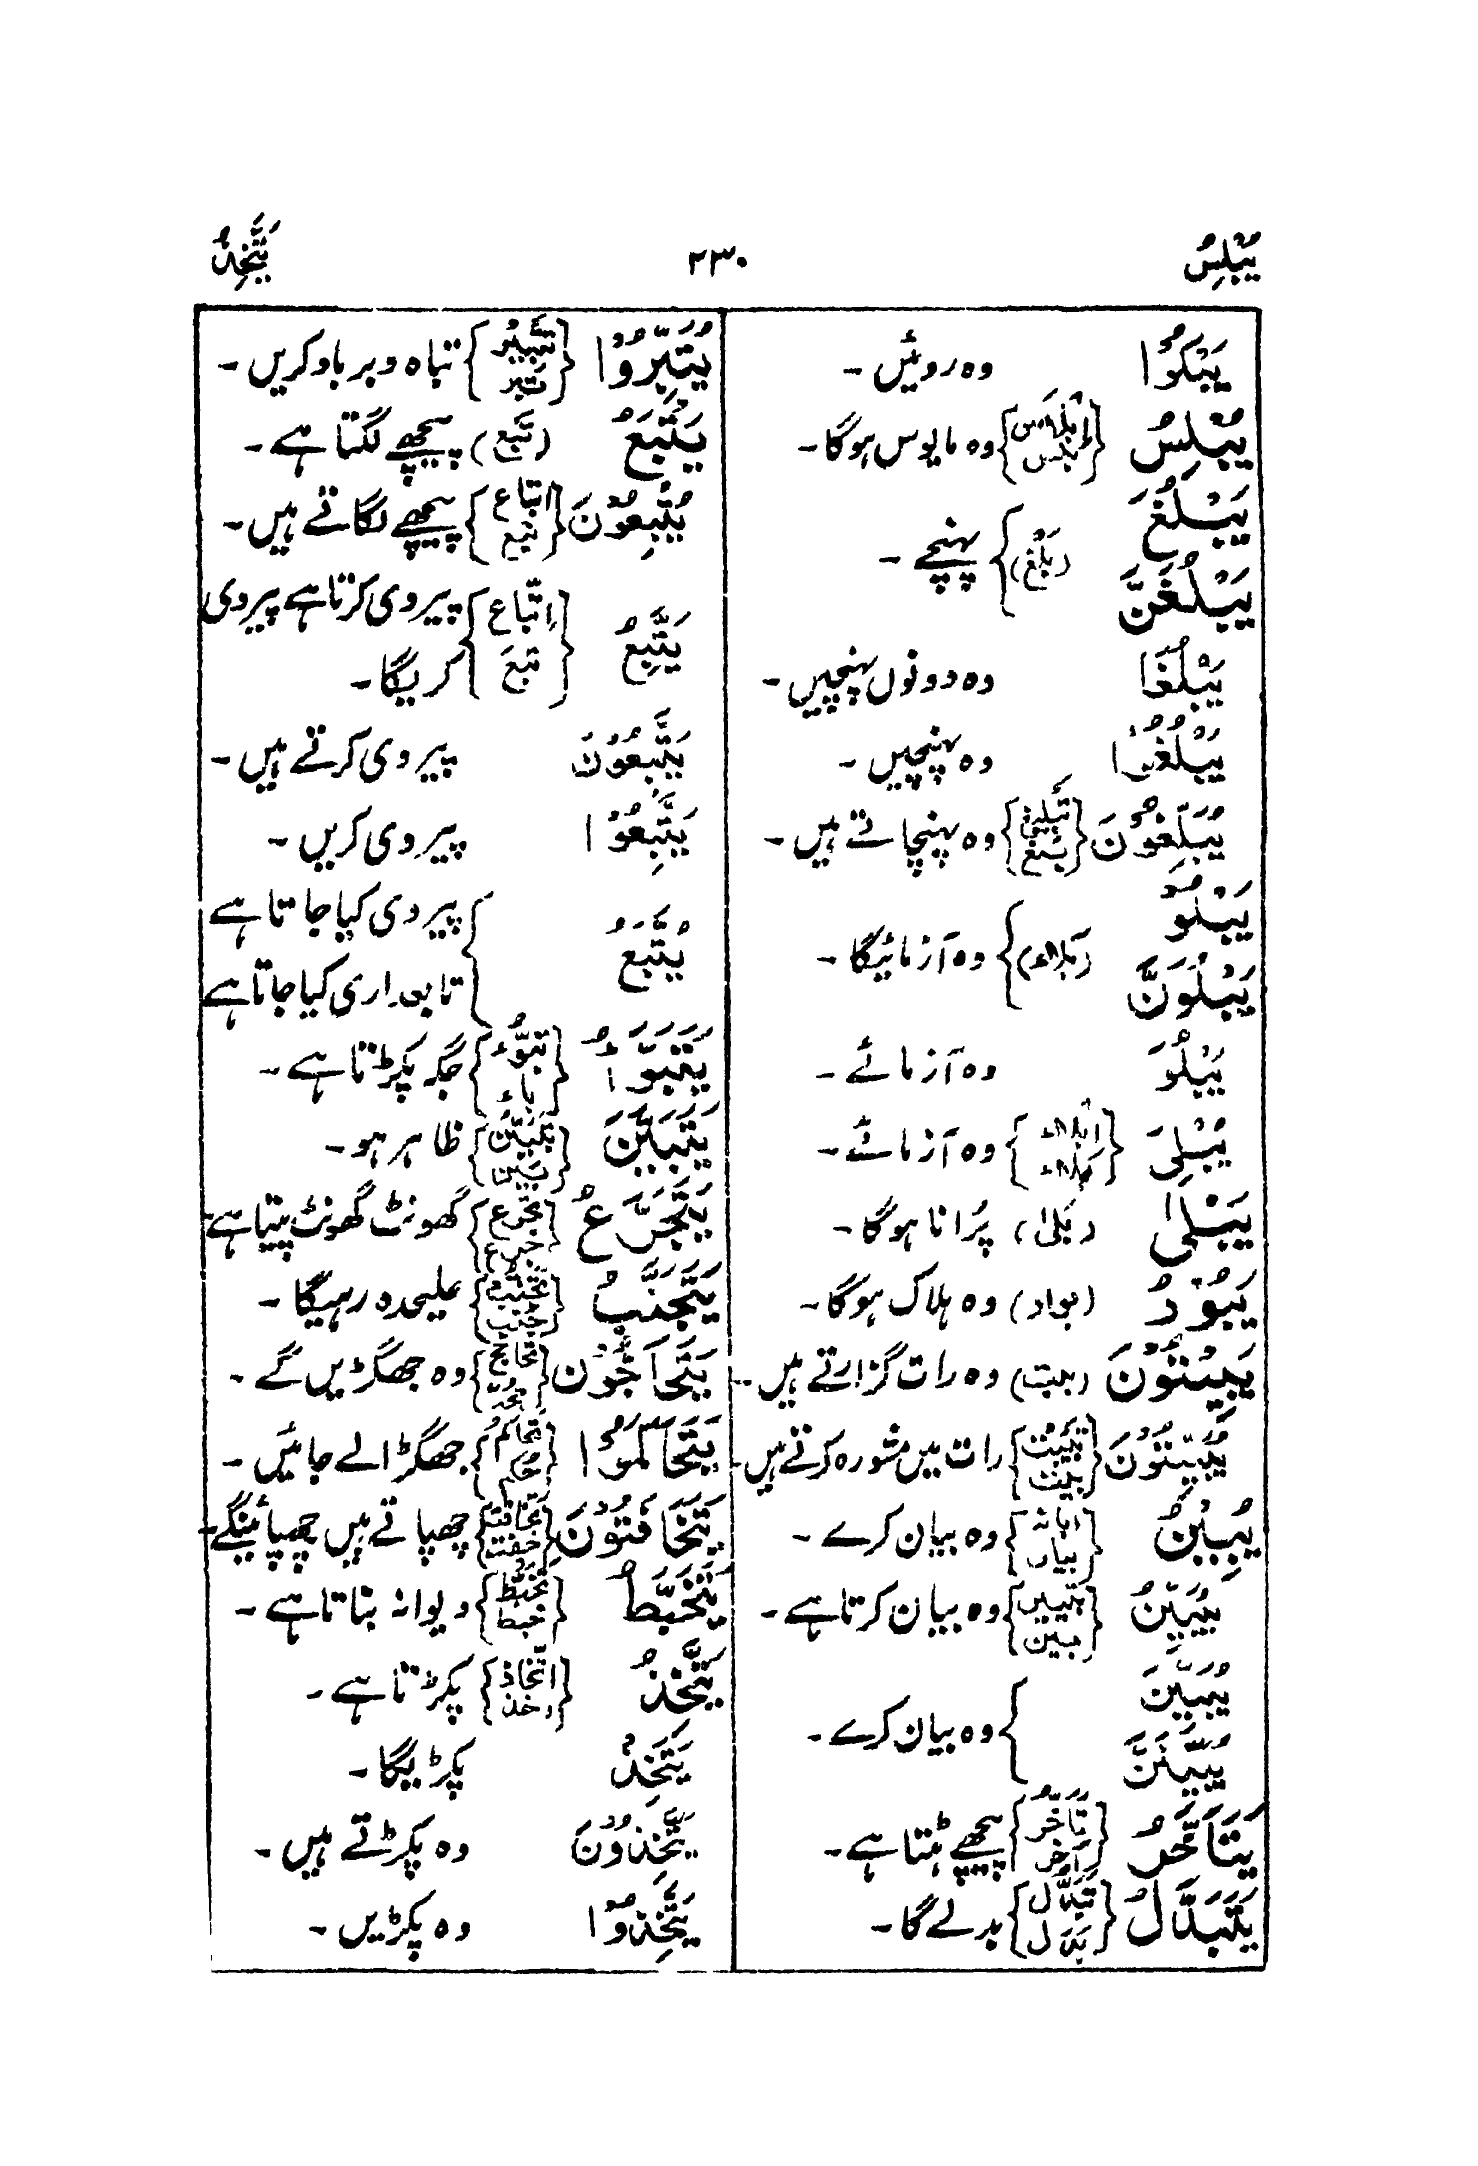 يُبْلِسُ ۲۳۰ يَتَّخِذُ
يَبْكُوْا وہ روئیں ۔
يُبْلِسُ {اِبْلَاس بلس} وہ مایوس ہوگا ۔
يَبْلُغَ
(بَلْغ) پہنچے ۔
يَبْلُغَنَّ
يَبْلُغَا وہ دونوں پہنچیں ۔
يَبْلُغُوْا وہ پہنچیں ۔
يُبَلِّغُوْنَ {تَبْلِيغ بلغ} وہ پہنچاتے ہیں ۔
يَبْلُوَ
(بَلَاء) وہ آزمائیگا ۔
يَبْلُوَنَّ
يَبْلُوَ وہ آزمائے ۔
يُبْلِىَ {اِبْلَاء بَلَاء} وہ آزمائے ۔
يَبْلٰى (بَلٰى) پُرانا ہوگا ۔
يَبُوْرُ (بوار) وہ ہلاک ہوگا ۔
يَبِيْتُوْنَ (بیت) وہ رات گزارتے ہیں ۔
يُبَيِّتُوْنَ {تَبْيِيْت بیت} رات میں مشورہ کرتے ہیں ۔
يُبِيْنُ {ابانہ بیان} وہ بیان کرے ۔
يُبَيِّنُ {تبیین بین} وہ بیان کرتا ہے ۔
يُبَيِّنَ
وہ بیان کرے ۔
يُبَيِّنَنَّ
يَتَاَخَّرُ {تَاَخُّر اَخر} پیچھے ہٹتا ہے ۔
يَتَبَدَّلُ {تَبَدُّل بدل} بدلے گا ۔
يُتَبِّرُوْا {تَتْبِيْر تبر} تباہ و برباد کریں ۔
يَتْبَعُ (تَبْع) پیچھے لگتا ہے ۔
يُتْبِعُوْنَ {اتباع تبع} پیچھے لگاتے ہیں ۔
يَتَّبِعُ {اِتِّبَاع تبع} پیروی کرتا ہے پیروی
کریگا ۔
يَتَّبِعُوْنَ پیروی کرتے ہیں ۔
يَتَّبِعُوْا پیروی کریں ۔
يُتَّبَعُ پیروی کیا جاتا ہے
تابعداری کیا جاتا ہے
يَتَبَوَّأُ {تبوّء باء} جگہ پکڑتا ہے ۔
يَتَبَيَّنَ {تَبَيُّن بین} ظاہر ہو ۔
يَتَجَرَّعُ {تجرّع جرع} گھونٹ گھونٹ پیتا ہے ۔
يَتَجَنَّبُ {تجنب جنب} علیحدہ رہیگا ۔
يَتَحَاجُّوْنَ {تحاجج} وہ جھگڑیں گے ۔
يَتَحَاكَمُوْا {تحاکم حکم} جھگڑا لے جائیں ۔
يَتَخَافَتُوْنَ {تخافت خفت} چھپاتے ہیں چھپائینگے ۔
يَتَخَبَّطُ {تخبط خبط} دیوانہ بناتا ہے ۔
يَتَّخِذُ {اتّخاذ اخذ} پکڑتا ہے ۔
يَتَّخِذُ پکڑیگا ۔
يَتَّخِذُوْنَ وہ پکڑتے ہیں ۔
يَتَّخِذُوْا وہ پکڑیں ۔